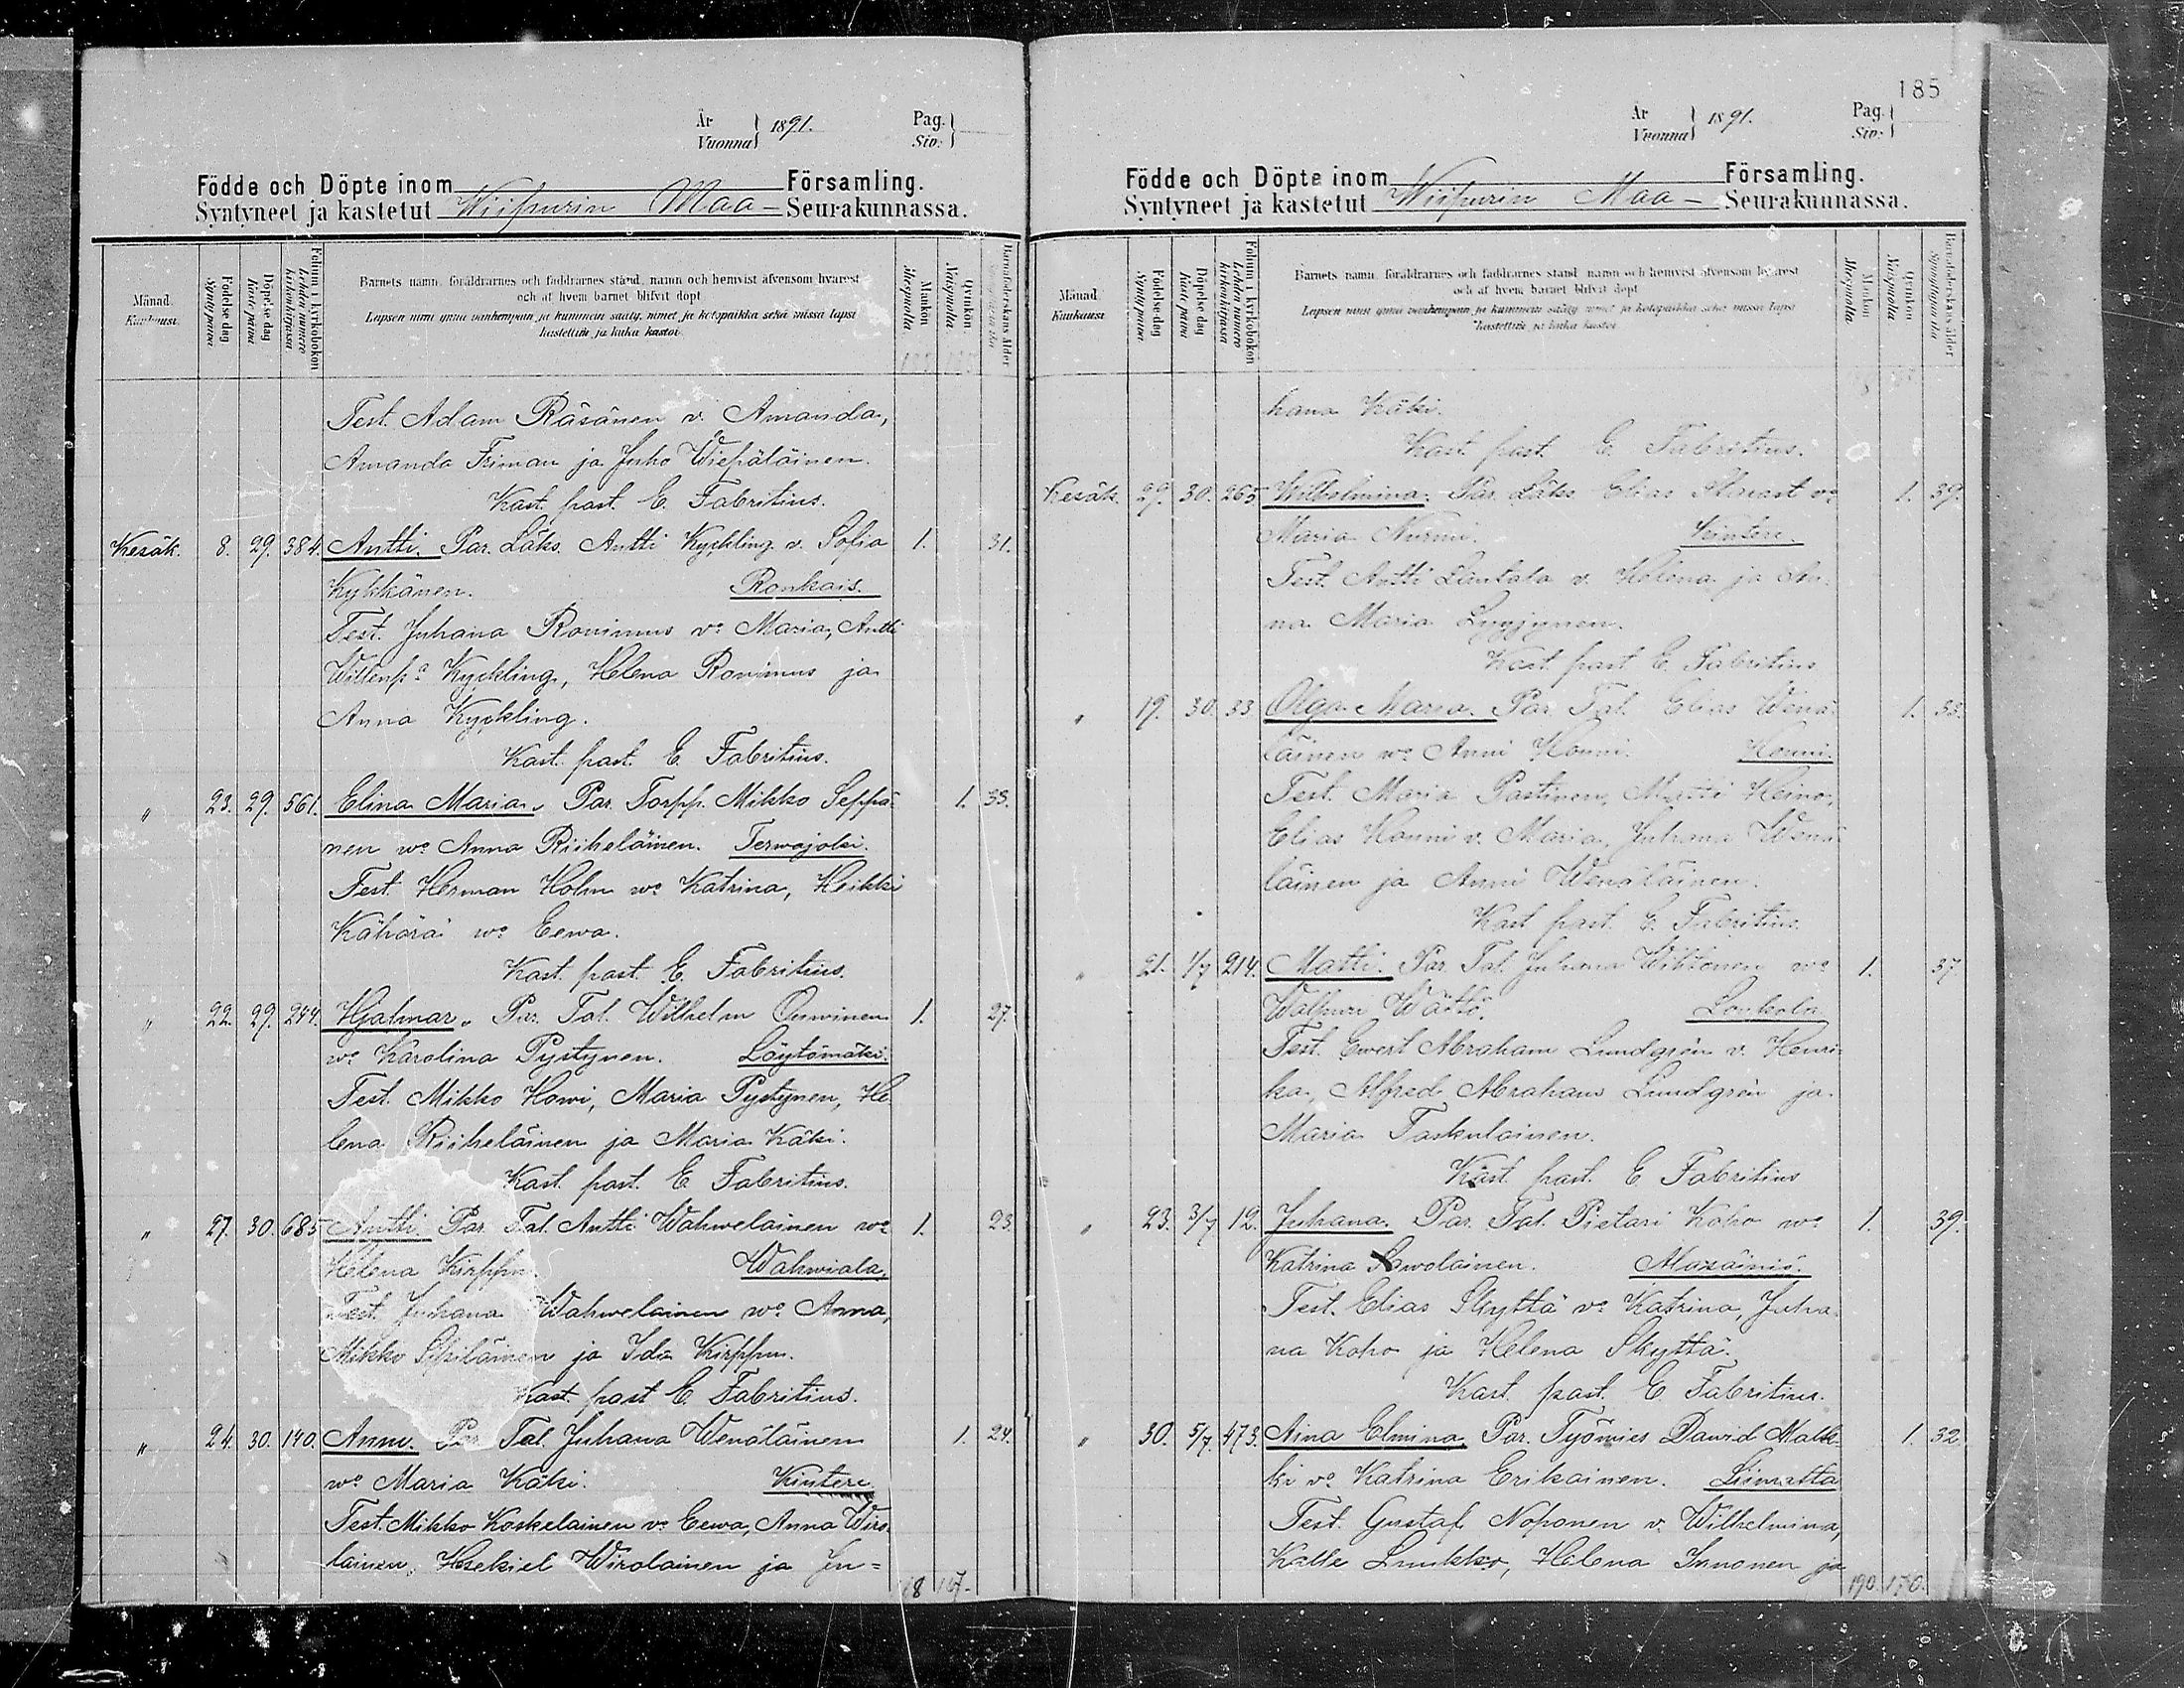 År
Vuonna } 1891.
Pag.
Siv: }
Födde och Döpte inom Församling.
Syntyneet ja kastetut Wiipurin Maa- Seurakunnassa.
Månad.
Kuukausi.
Födelse dag
Synty päiwä
Döpelse dag
Kaste päiwä
Folium i kyrkoboken
Lehden numero kirkonkirjassa
Barnets namn, föräldrarnes och faddrarnes stånd, namn och hemvist äfvensom hvarest
och af hvem barnet blifvit döpt
Lapsen nimi ynnä vanhempain ja kummein sääty, nimet ja kotopaikka sekä missä lapsi
kastettiin ja kuka kastoi.
Mankön
Miespuolta
Qvinkön
Naispuolta
Barnaföderskans ålder
Test. Adam Räsänen v. Amanda,
Amanda Friman ja Juho Wiepäläinen.
Kast. past. E. Fabritius.
Kesäk. 8. 29. 384. Antti. Par. Läks. Antti Kyckling v. Sofia 1. 31.
Kykkänen. Ronkais.
Test. Juhana Ronimus vo Maria, Antti
Willenpa Kyckling, Helena Ronimus ja
Anna Kyckling.
Kast. past. E. Fabritius.
" 23. 29. 561. Elina Maria. Par. Torpp. Mikko Seppä- 1. 33.
nen wo Anna Riiheläinen. Terwajoki.
Test. Herman Holm wo Katrina, Heikki
Kähärä wo Eewa.
Kast. past. E. Fabritius.
" 22. 29. 244. Hjalmar. Par. Tal. Wilhelm Ouwinen 1. 27.
wo Karolina Pystynen. Löytömäki.
Test. Mikko Howi, Maria Pystynen, He-
lena Riiheläinen ja Maria Käki.
Kast. past. E Fabritius.
" 27. 30. 685 Antti. Par. Tal. Antti Wahwelainen wo 1. 23.
Helena Kirppu. Wahwiala.
Test. Juhana Wahwelainen wo Anna,
Mikko ja Ida Kirppu.
Kast. past E. Fabritius.
" 24. 30. 140. Anni. Par. Tal. Juhana Wenäläinen 1. 24.
wo Maria Käki. Kintere
Test. Mikko Koskelainen vo Eewa, Anna Wiro-
lainen, Hesekiel Wirolainen ja Ju=
185
År
Vuonna } 1891.
Pag.
Siv: }
Födde och Döpte inom Församling.
Syntyneet ja kastetut Wiipurin Maa- Seurakunnassa.
Månad.
Kuukausi
Födelse dag
Synty päiwä
Döpelse dag
Kaste päiwä
Folium i kyrkoboken
Lehden numero kirkonkirjassa
Barnets namn, föräldrarnes och faddrarnes stånd, namn och hemvist äfvensom hvarest
och af hvem barnet blifvit döpt
Lapsen nimi ynnä vanhempain ja kummein sääty nimet ja kotopaikka sekä missä lapsi
kastettiin ja kuka kastoi
Mankön
Miespuolta
Qvinkön
Naispuolta
Barnaföderskans ålder
Synnyttäjän ikä
hana Käki.
Kast. past. E. Fabritius.
Kesäk. 29. 30. 265 Wilhelmina. Par. Läks. Elias Skarast vo 1. 39.
Maria Nurmi. Kintere.
Test. Antti Lautala v. Helena ja An-
na Maria Lyyjynen.
Kast. past E. Fabritius
" 19. 30. 33 Olga Maria. Par. Tal. Elias Wenä- 1. 33.
läinen wo Anni Honni. Honni.
Test. Maria Pastinen, Matti Heino,
Elias Honni v. Maria, Juhana Wenä-
läinen ja Anni Wenäläinen.
Kast past. E. Fabritius.
" 21. 1/7 214. Matti. Par. Tal. Juhana Wihtonen wo 1. 37
Walpuri Wättö. Loukola
Test. Ewert Abraham Lundgrén v. Henri-
ka, Alfred Abraham Lundgrén ja
Maria Taskulainen.
Kast. past. E Fabritius
" 23. 3/7 12. Juhana. Par. Tal. Pietari Koho wo 1. 39.
Katrina Sawolainen.
Test. Elias Skyttä vo Katrina, Juha-
na Koho ja Helena Skyttä.
Kast. past. E. Fabritius.
" 30. 5/7 473. Aina Elmina. Par. Työmies Dawid Malk- 1. 32
ki vo Katrina Erikainen. Liimatta
Test. Gustaf Noponen v. Wilhelmina,
Kalle Luukko, Helena Innonen ja
190. 170.